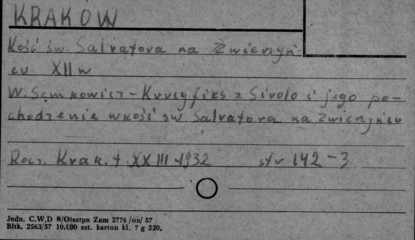 KRAKOW
Kość św. Salvatora na Zwierzyń-
cu XII w
W. Semkowicz - Krucyfiks z Sirolo i jego po-
chodzenie w kośc św Salvatora na Zwierzyńcu
Rocz. Krak. t. XXIII-1932 str 142-3
Jedn. C.W.D 8/Olsztyn Zam 2776 /on/ 57
Bhk. 2563/57 10.000 szt. karton kl. 7 g 220.